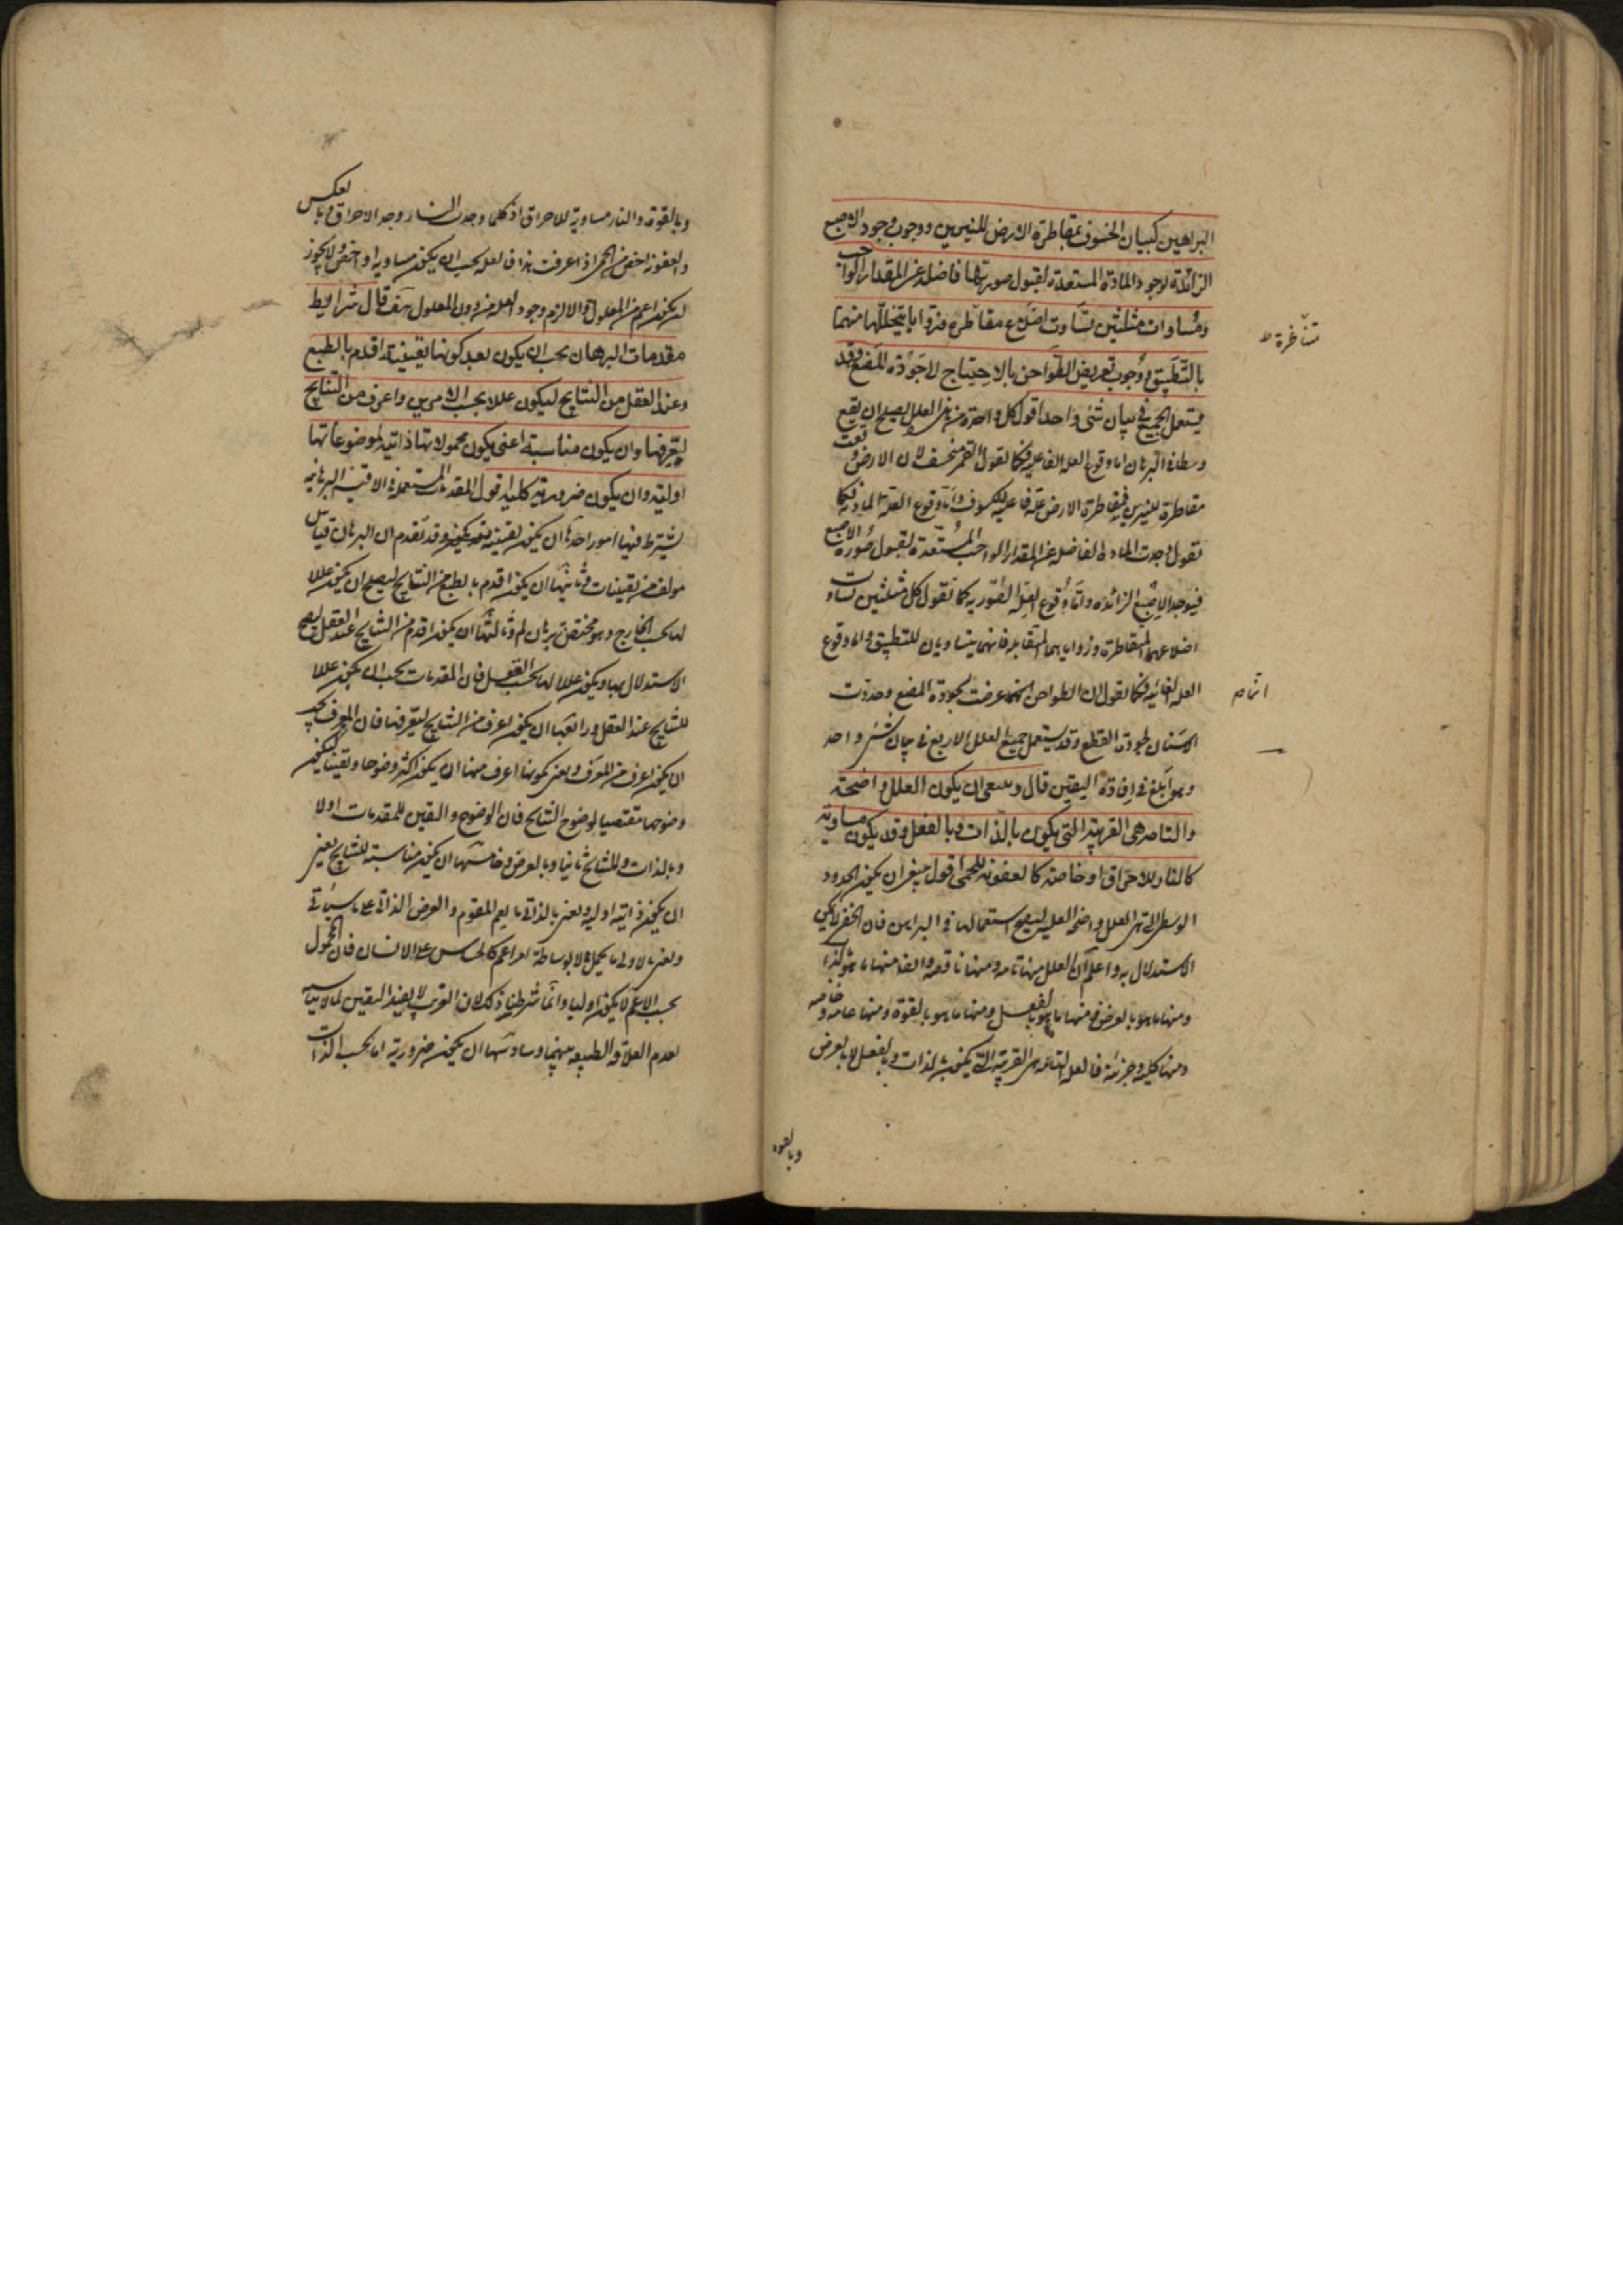 البراهين كبيان الخسوف بمقاطرة الارض للنيرين ووجوب وجود الاصبع
الزائدة لوجود المادة المستعدة لقبول صورتها فاضلة عن المقدار الواجب
ومساوات مثلثين تساوت اضلاع مقاطرة وزوايا يتخللها منهما
بالتطبيق ووجوب تعريض الطواحن بالاحتياج لاجودة المضغ وقد
يستعمل الجميع في بيان شئ واحد اقول كل واحدة من هذه العلل يصلح ان يقع
وسطا في البرهان اما وقوع العلة الفاعلية فكما نقول القمر منخسف لان الارض وقعت
مقاطرة للنيرين فمقاطرة الارض علة فاعلية للكسوف واما وقوع العلة المادية فكما
نقول وجدت المادة الفاضلة عن المقدار الواجب المستعدة لقبول صورة الاصبع
فيوجد الاصبع الزائدة واما وقوع العلة الصورية كما نقول كل مثلثين تساوت
اضلاعهما المتقاطرة وزواياهما المتقابلة فانهما يتساويان للتطبيق واما وقوع
العلة الغائية فكما نقول ان الطواحن انما عرضت لجودة المضغ وحددت
الاسنان لجودة القطع وقد يستعمل جميع العلل الاربع في بيان شئ واحد
وهو ابلغ في افادة اليقين قال وينبغي ان يكون العلل واضحة
والتامة هي القريبة التي يكون بالذات وبالفعل وقد يكون مساوية
كالنار للاحراق او خاصة كالعفونة للحمى اقول ينبغي ان يكون الحدود
الوسطى التي هي العلل واضحة العلية ليصح استعمالها في البراهين فان الخفي لا يمكن
الاستدلال به واعلم ان العلل منها تامة ومنها ناقصة وايضا منها ما هو بالذات
ومنها ما هو بالعرض ومنها ما هو بالفعل ومنها ما هو بالقوة ومنها عامة وخاصة
ومنها كلية وجزئية فالعلة التامة هي القريبة التي يكون بالذات وبالفعل لا بالعرض
وبالقوة
اتمام
وبالقوة والنار مساوية للاحراق اذ كلما وجدت النار وجد الاحراق وبالعكس
والعفونة اخص من الحمى اذا عرفت هذا فالعلة يجب ان يكون مساوية او اخص ولا يجوز
ان يكون اعم من المعلول والا لزم وجود العلة من دون المعلول هف قال شرايط
مقدمات البرهان يجب ان يكون بعد كونها يقينية اقدم بالطبع
وعند العقل من النتايج ليكون عللا بحسب الامرين واعرف من النتايج
ليعرفها وان يكون مناسبة اعني يكون محمولاتها ذاتية لموضوعاتها
اولية وان يكون ضرورية كلية اقول المقدمات المستعملة في الاقيسة البرهانية
يشترط فيها امور احدها ان يكون يقينية وقد تقدم ان البرهان قياس
مولف من يقينيات وثانيها ان يكون اقدم بالطبع من النتايج ليصلح ان يكون عللا
لها بحسب الخارج وهو مختص ببرهان لم وثالثها ان يكون اقدم من النتايج عند العقل ليصح
الاستدلال بها ويكون عللا لها بحسب العقل فان المقدمات يجب ان يكون عللا
للنتايج عند العقل ورابعها ان يكون اعرف من النتايج ليعرفها فان المعرف يجب
ان يكون اعرف من المعرف ونعني بكونها اعرف منها ان يكون اكثر وضوحا ويقينا ليكون
وضوحها مقتضيا لوضوح النتايج فان الوضوح واليقين للمقدمات اولا
وبالذات وللنتايج ثانيا وبالعرض وخامسها ان يكون مناسبة للنتايج يعني
ان يكون ذاتية اولية ونعني بالذاتي ما يعم المقوم والعرض الذاتي على ما سياتي
ونعني بالاولى ما يحمل لا بوساطة امر اعم كالحساس على الانسان فان المحمول
بحسب الاعم لا يكون اوليا وانما شرطنا ذلك لان الغريب لا يفيد اليقين لما لا يناسبه
لعدم العلاقة الطبيعية بينهما وسادسها ان يكون ضرورية اما بحسب الذات